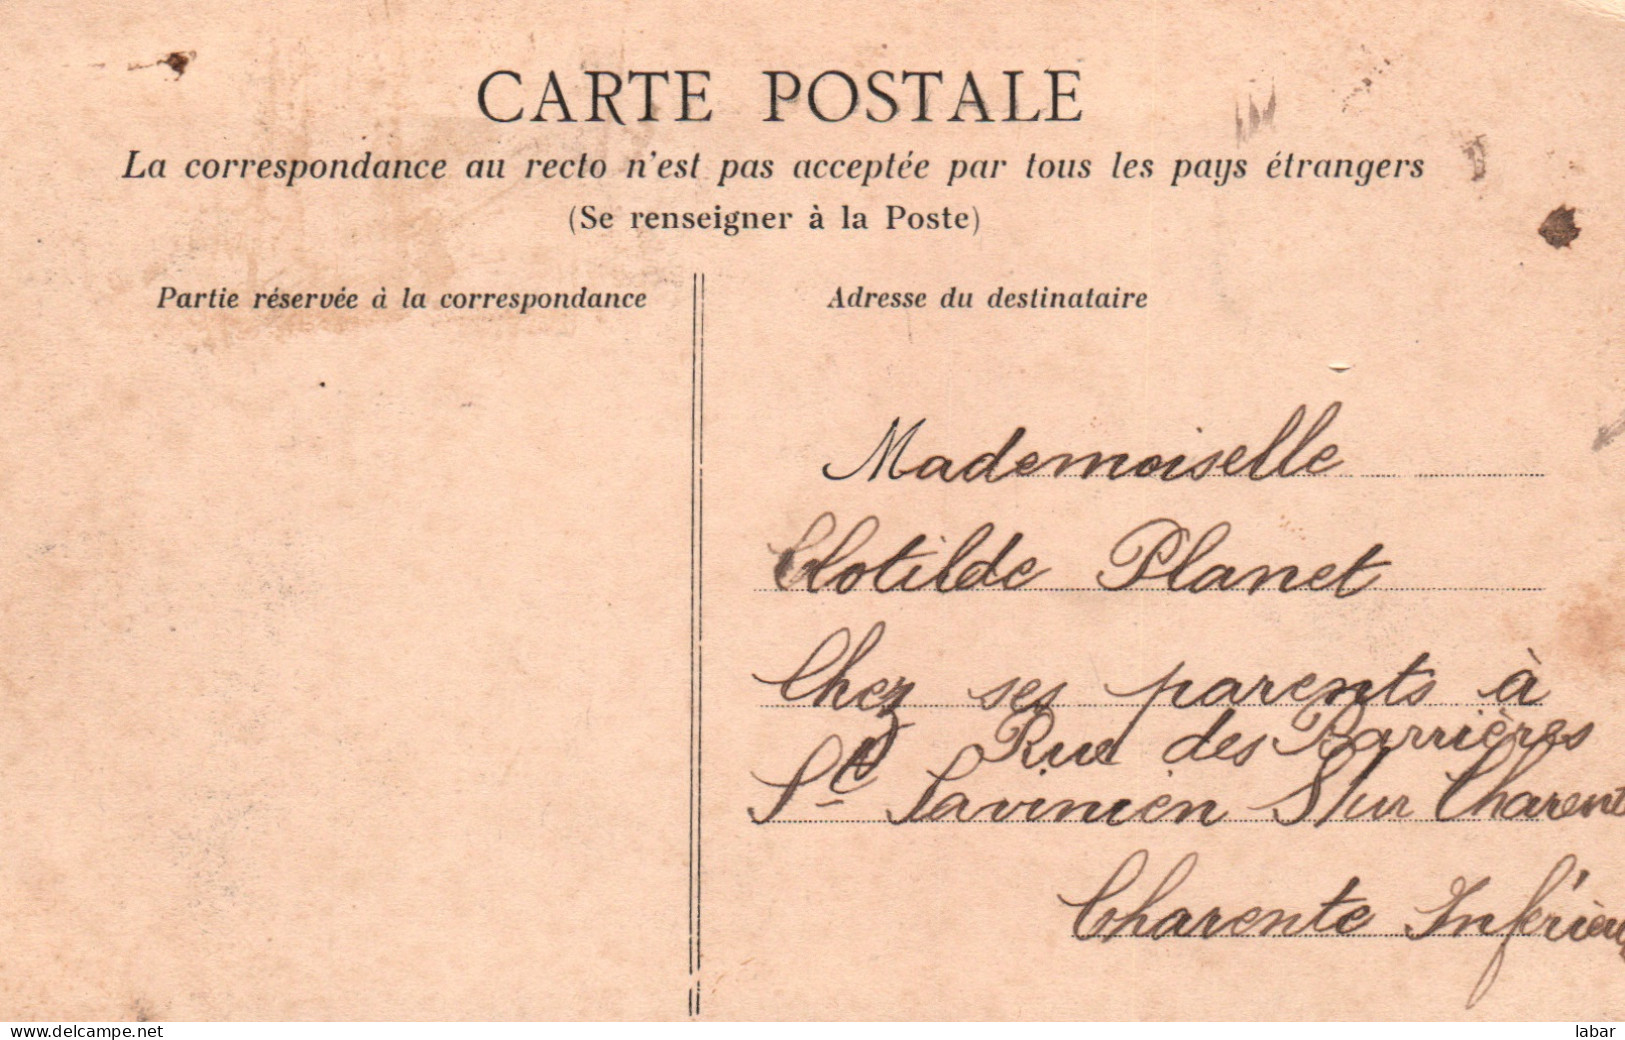 CARTE POSTALE
La correspondance au recto n'est pas acceptée par tous les pays étrangers
(Se renseigner à la Poste)
Partie réservée à la correspondance
Adresse du destinataire
Mademoiselle
Clotilde Planet
Chez ses parents à
Rue des Barrières
St Savinien Sur Charent
Charente Inférieu
www.delcampe.net
labar